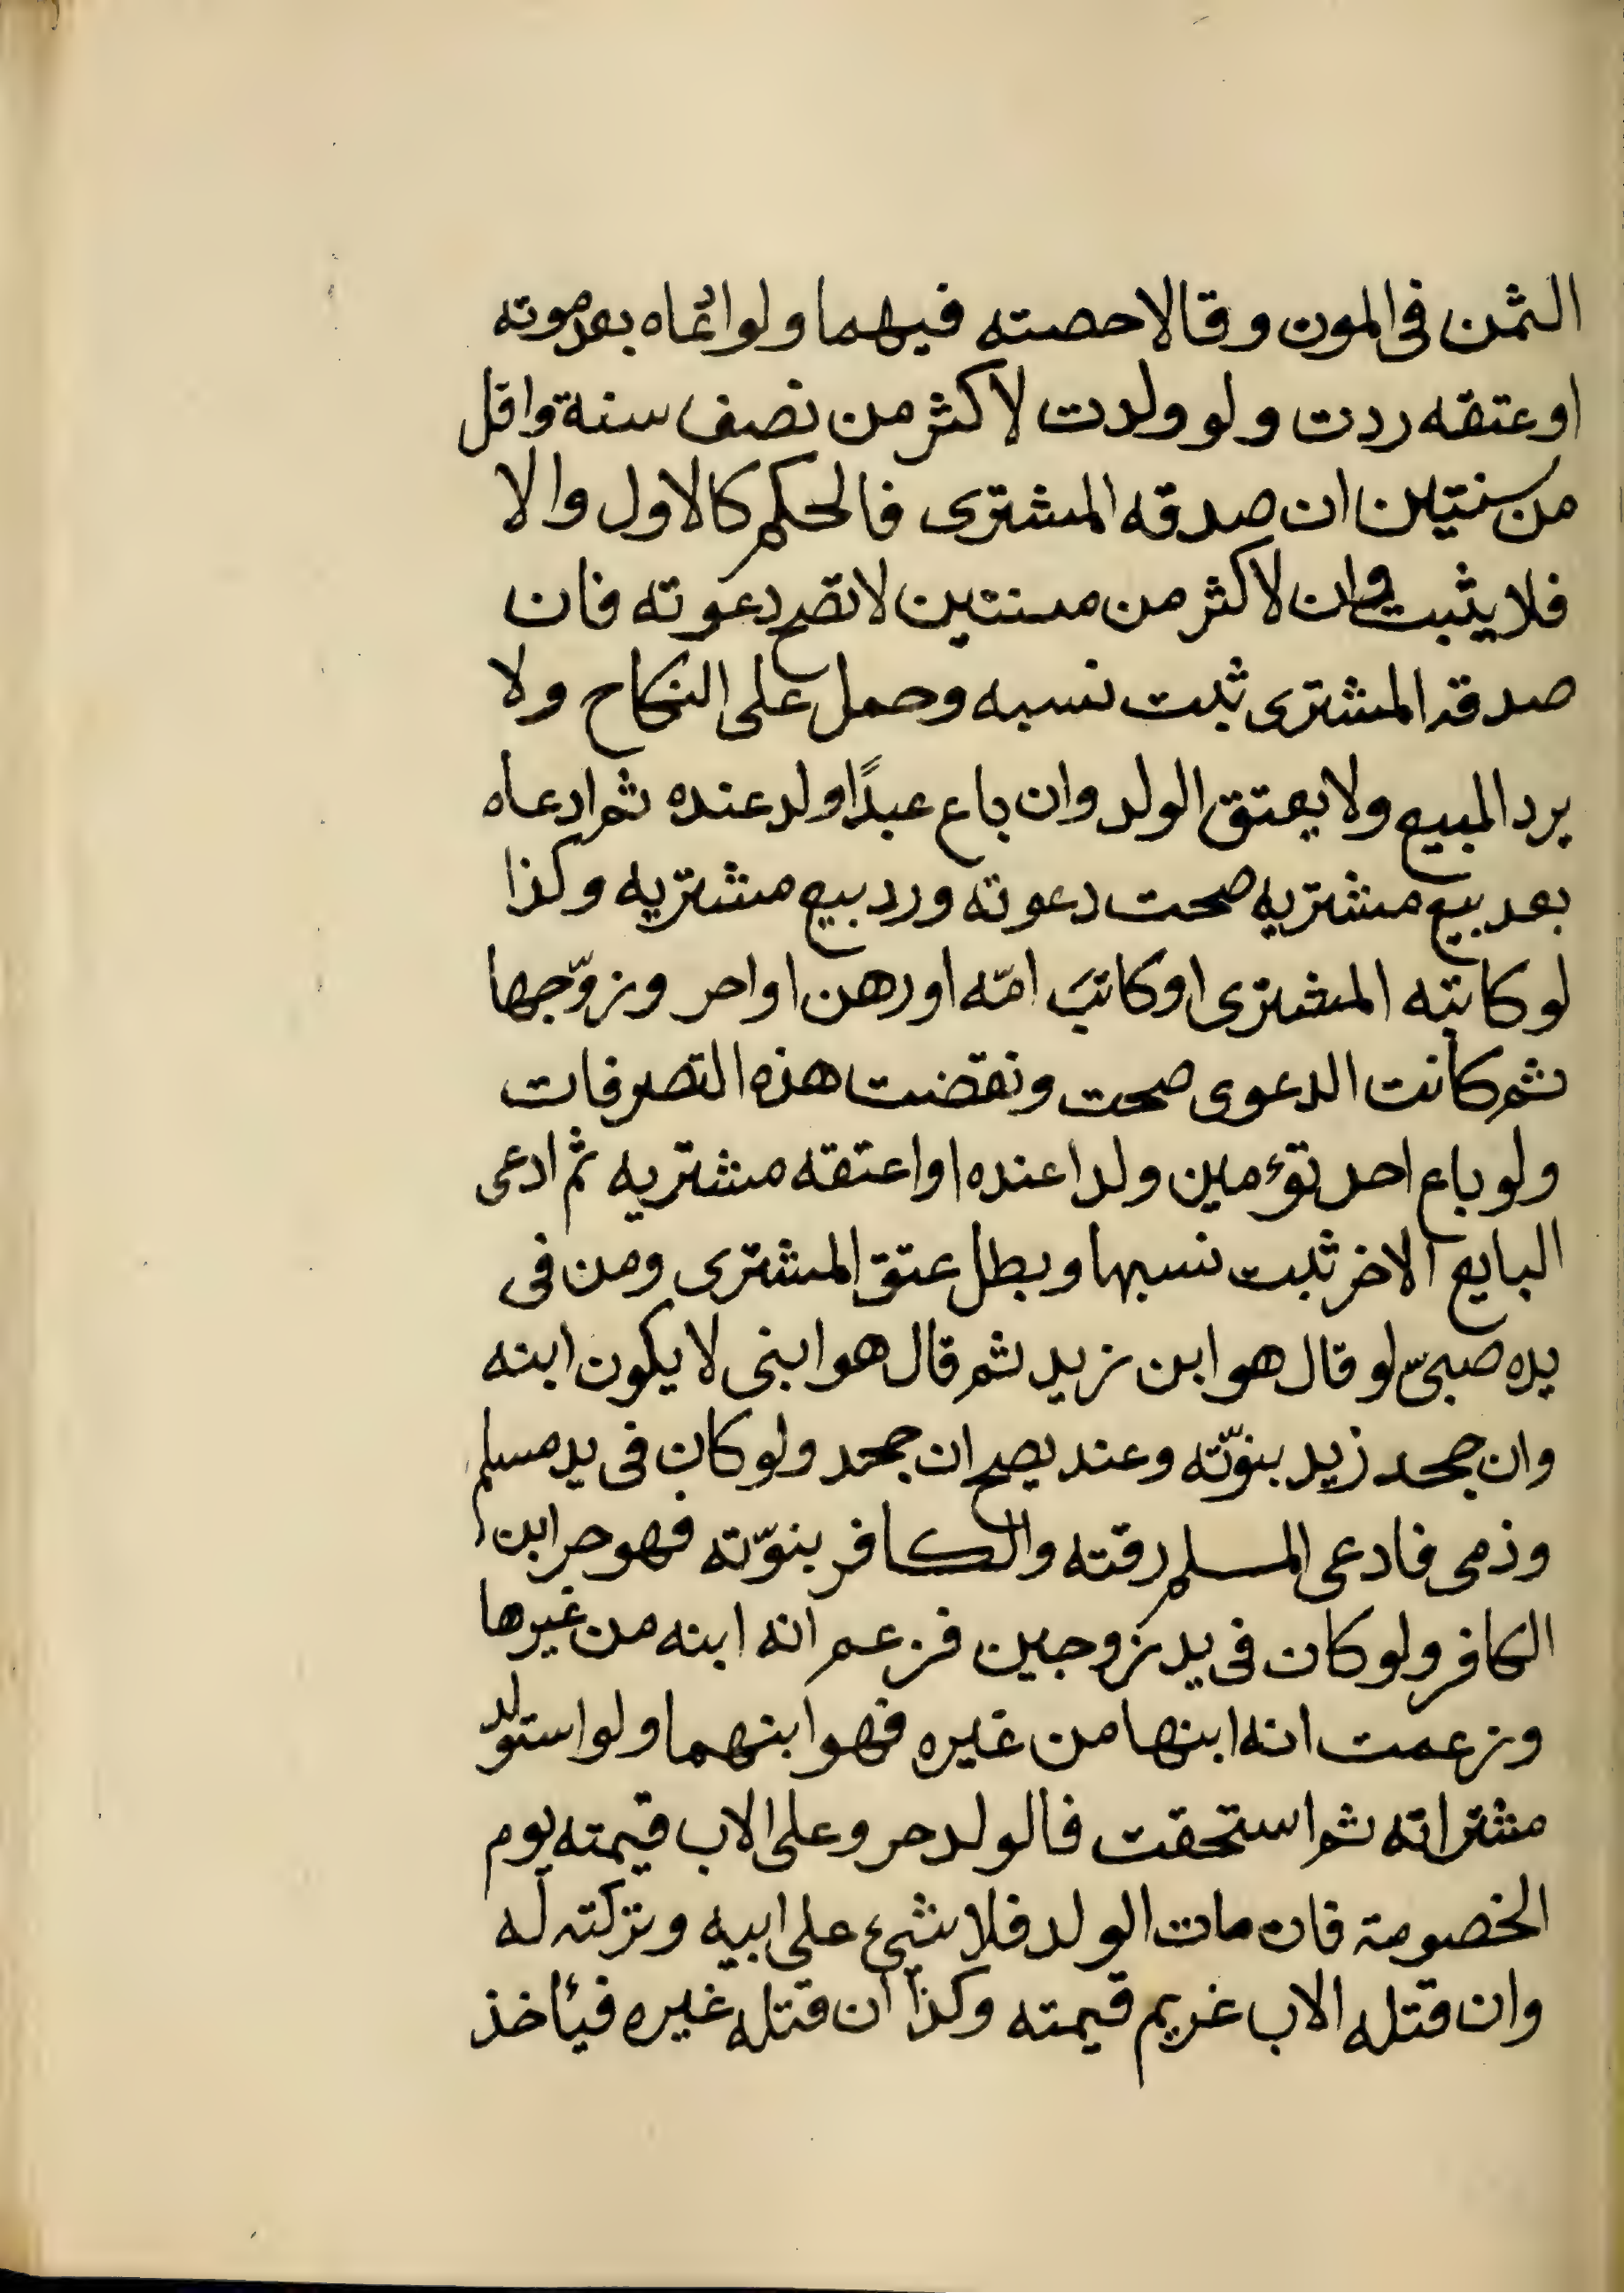 الثمن فى المون وقالا حصته فيهما ولو ائماه بعد موته
او عتقه ردت ولو ولدت لاكثر من نصف سنة واقل
من سنتين ان صدقه المشترى فالحكم كالاول والا
فلا يثبت وان لاكثر من سنتين لا تصح دعوته فان
صدقه المشترى ثبت نسبه وحمل على النكاح ولا
يرد المبيع ولا يعتق الولد وان باع عبدًا ولد عنده ثم ادعاه
بعد بيع مشتريه صحت دعوته ورد بيع مشتريه وكذا
لو كاتبه المشترى او كاتبَ امّه او رهن او احر وزوّجها
ثم كانت الدعوى صحت ونقضت هذه التصرفات
ولو باع احد توءمين ولدا عنده او اعتقه مشتريه ثم ادعى
البايع الاخر ثبت نسبها وبطل عتق المشترى ومن فى
يده صبىّ لو قال هو ابن زيد ثم قال هو ابنى لا يكون ابنه
وان جحد زيد بنوّته وعند يصح ان جحد ولو كان فى يد مسلم
وذمى فادعى المسلم رقته والكافر بنوّته فهو حر ابن
الكافر ولو كان فى يد زوجين فزعم انه ابنه من غيرها
وزعمت انه ابنها من غيره فهو ابنهما ولو استولد
مشتراته ثم استحقت فالولد حر وعلى الاب قيمته يوم
الخصومة فان مات الولد فلا شىء على ابيه وتركته له
وان قتله الاب غريم قيمته وكذا ان قتله غيره فيأخذ